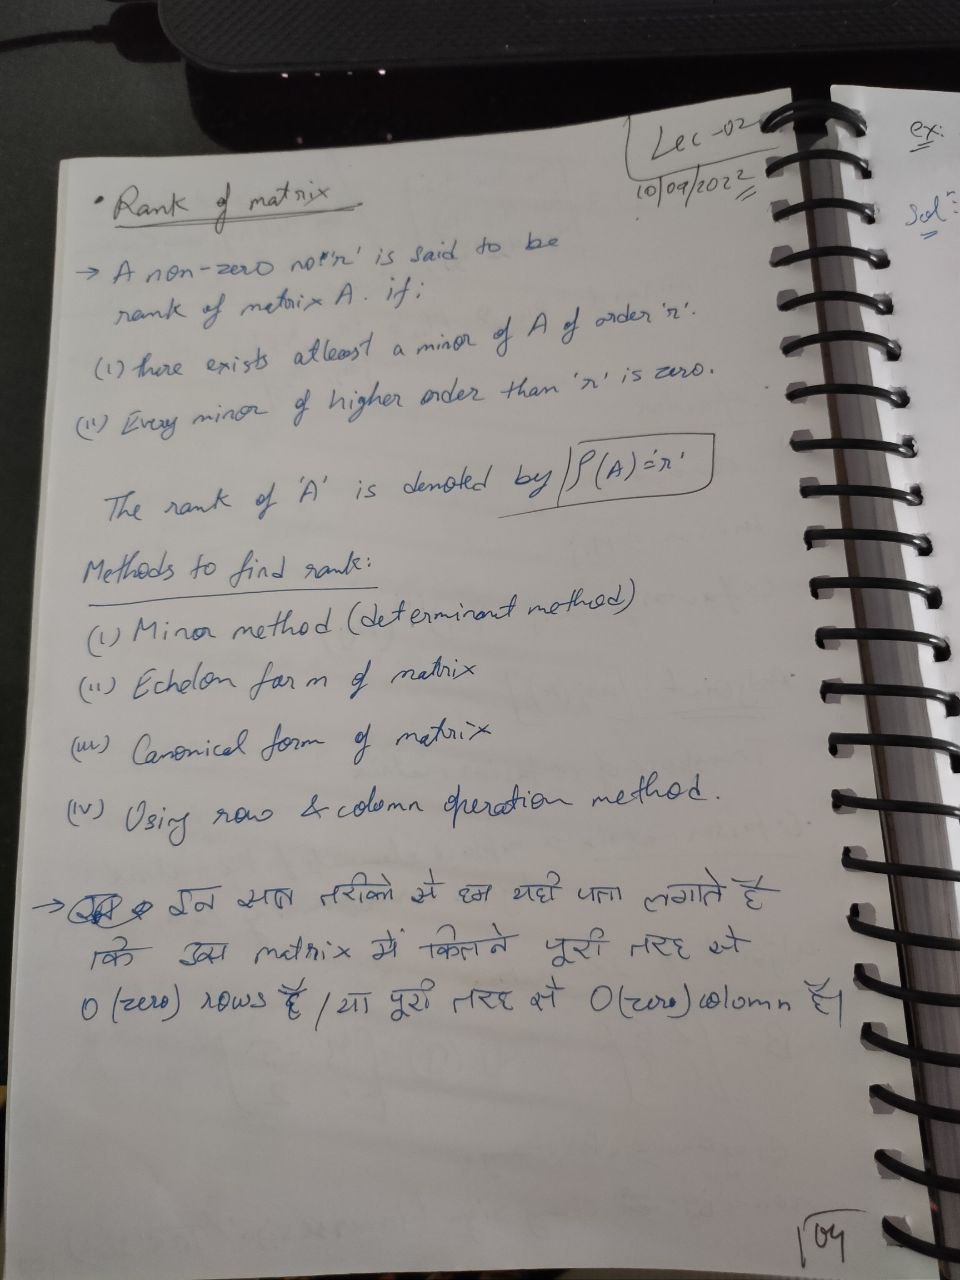 Lec-02
10/09/2022
• Rank of matrix
→ A non-zero no. 'r' is said to be
rank of matrix A. if;
(i) there exists atleast a minor of A of order 'r'.
(ii) Every minor of higher order than 'r' is zero.
The rank of 'A' is denoted by ρ(A)='r'
Methods to find rank:
(i) Minor method (determinant method)
(ii) Echelon form of matrix
(iii) Canonical form of matrix
(iv) Using row & colomn operation method.
→ इन सब तरीको से हम यही पता लगाते है
कि उस matrix में कितने पूरी तरह से
0 (zero) rows है / या पूरी तरह से 0 (zero) colomn है।
04
ex:
Solⁿ: